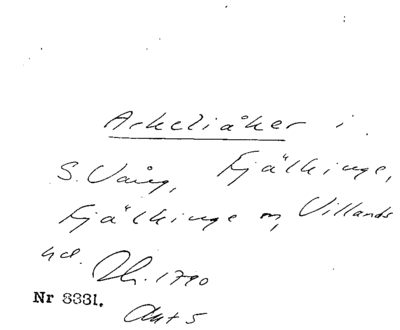 Arkeliåker i
S. Vång, Fjälkinge,
Fjälkinge sn, Villands
hd. Dh. 1790
Nr 8331.
Akt 5